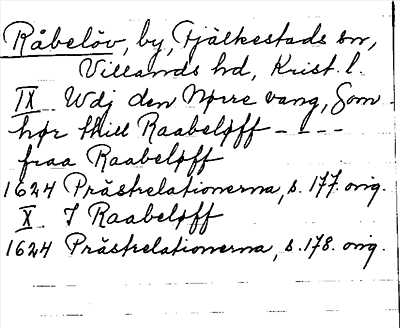 Råbelöv, by, Fjälkestads sn,
Villands hd, Krist. l.
IX. Udj den Nørre vang, Som
hør thill Raabeløff - - - -
fraa Raabeløff
1624 Prästrelationerna, s. 177. orig.
X. I Raabeløff
1624 Prästrelationerna, s. 178. orig.